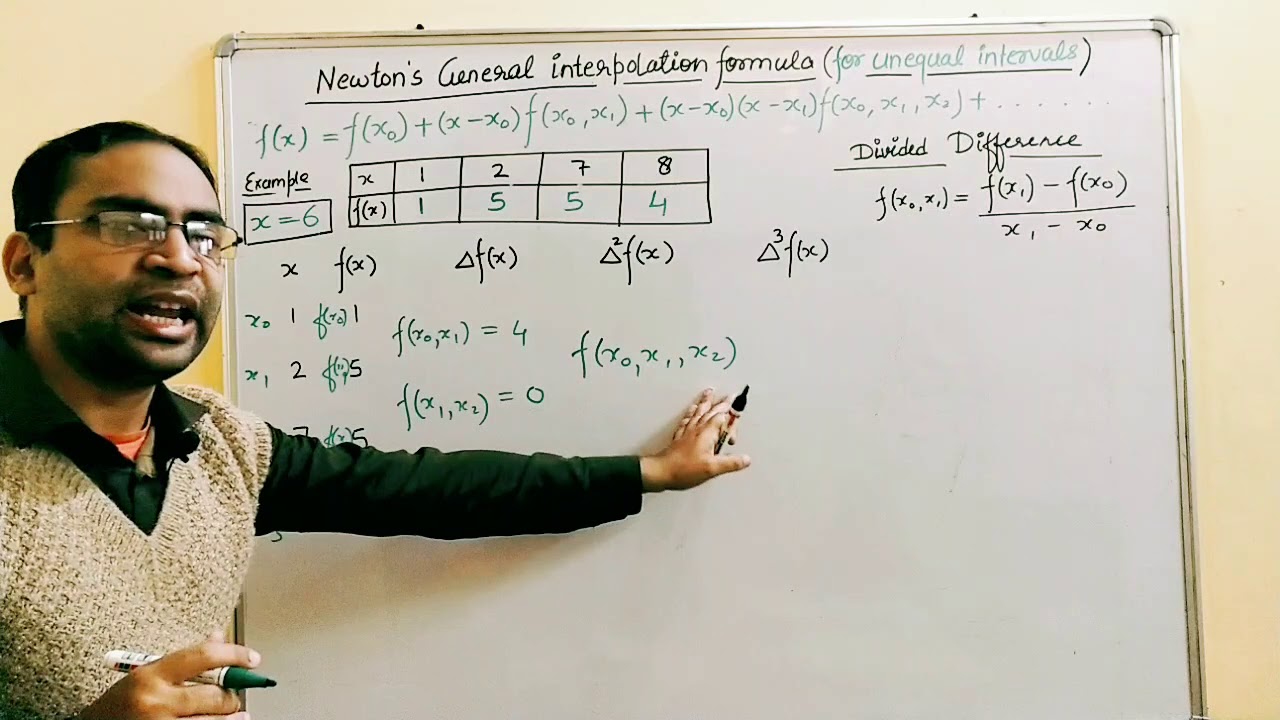 Newton's General interpolation formula (for unequal intervals)
f(x) = f(x₀) + (x-x₀) f(x₀,x₁) + (x-x₀)(x-x₁) f(x₀,x₁,x₂) + . . . . . . .
Divided Difference
f(x₀,x₁) = f(x₁) - f(x₀)
x₁ - x₀
Example
x = 6
x 1 2 7 8
f(x) 1 5 5 4
x f(x) Δf(x) Δ²f(x) Δ³f(x)
x₀ 1 f(x₀) 1
f(x₀,x₁) = 4
f(x₀,x₁,x₂)
x₁ 2 5
f(x₁,x₂) = 0
7 5
3